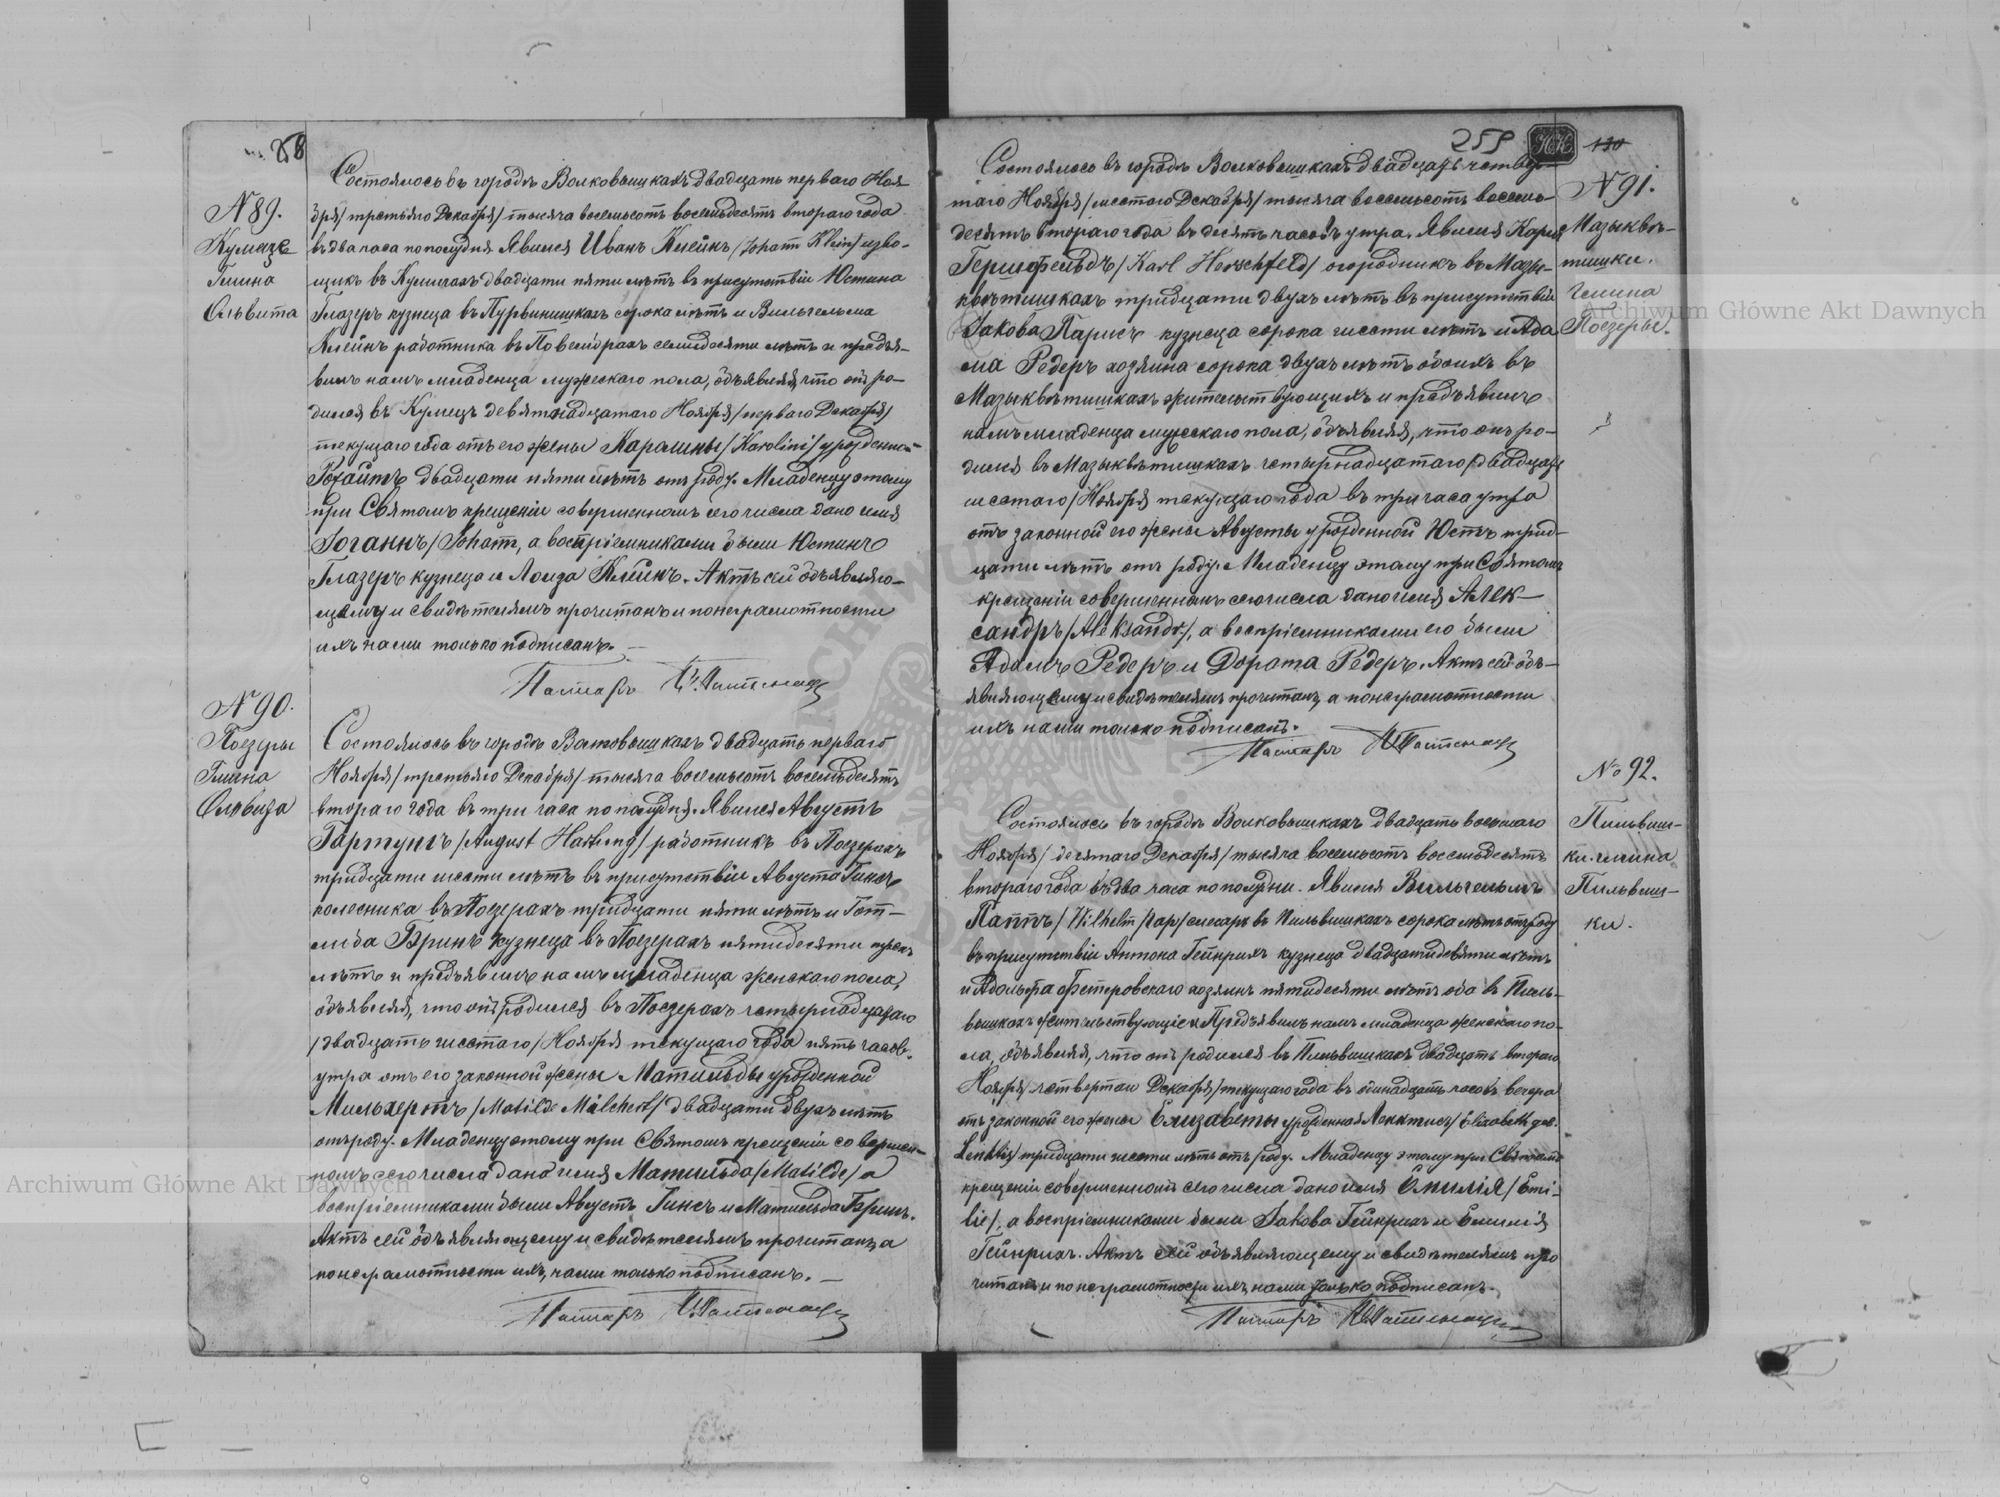 258
N 89.
Кумецъ
Гмина
Ольвита
Состоялось въ городѣ Волковышкахъ двадцать перваго Ноя-
бря/третьяго Декабря/тысяча восемьсотъ восемьдесятъ втораго года
въ два часа пополудня. Явился Иванъ Клейнъ /Johann Klein/ изво-
щикъ въ двадцати пяти лѣтъ въ присутствіи Юстина
Глазеръ кузнеца въ Пурвинишкахъ сорока лѣтъ и Вильгельма
Клейнъ работника въ семидесяти лѣтъ и предъя-
вилъ намъ младенца мужескаго пола, объявляя что онъ ро-
дился въ девятнадцатаго Ноября /перваго Декабря/
текущаго года отъ его жены Каролины /Karolini/ урожденной
двадцати пяти лѣтъ отъ роду. Младенцу этому
при Святомъ крещеніи совершенномъ сего числа дано имя
Іоганнъ /Johann, а воспріемниками были Юстинъ
Глазеръ кузнеца и Клейнъ. Актъ сей объявляю-
щему и свидѣтелямъ прочитанъ и понеграмотности
ихъ нами только подписанъ. —
Пасторъ
N 90.
Поезеры
Гмина
Ольвита
Состоялось въ городѣ Волковышкахъ двадцать перваго
Ноября/третьяго Декабря/тысяча восемьсотъ восемьдесятъ
втораго года въ три часа пополудня. Явился Августъ
Гартунгъ /August Hartung/ работникъ въ Поезерахъ
тридцати шести лѣтъ въ присутствіи Августа Гинсъ
колесника въ Поезерахъ тридцати пяти лѣтъ и Гот-
либа Бринъ кузнеца въ Поезерахъ пятидесяти трехъ
лѣтъ и предъявилъ намъ младенца женскаго пола,
объявляя, что онъ родился въ Поезерахъ четырнадцатаго
/двадцать шестаго/ Ноября текущаго года пять часовъ
утра отъ его законной жены Матильды урожденной
Мильхертъ /Matilde Milchert/ двадцати двухъ лѣтъ
отъ роду. Младенцу этому при Святомъ крещеніи совершен-
номъ сего числа дано имя Матильда /Matilde/ а
воспріемниками были Августъ Гинсъ и Матильда Бринъ.
Актъ сей объявляющему и свидѣтелямъ прочитанъ а
понеграмотности ихъ, нами только подписанъ. —
Пасторъ
259 НК 130
Состоялось въ городѣ Волковышкахъ двадцать четвер-
таго Ноября /шестаго Декабря/ тысяча восемьсотъ восемь-
десятъ втораго года въ десять часовъ утра. Явился Карлъ
Гершфельдъ /Karl Herschfeld/ огородникъ въ Мазы-
квѣтишкахъ тридцати двухъ лѣтъ въ присутствіи
Іакова Парисъ кузнеца сорока шести лѣтъ и Ада-
ма Редеръ хозяина сорока двухъ лѣтъ обоихъ въ
Мазыквѣтишкахъ жительствующихъ и предъявилъ
намъ младенца мужескаго пола, объявляя, что онъ ро-
дился въ Мазыквѣтишкахъ четырнадцатаго /двадцать
шестаго/ Ноября текущаго года въ три часа утра
отъ законной его жены Августы урожденной Юстъ трид-
цати лѣтъ отъ роду. Младенцу этому при Святомъ
крещеніи совершенномъ сего числа дано имя Алек-
сандръ /Aleksandr/, а воспріемниками его были
Адамъ Редеръ и Дорота Редеръ. Актъ сей объ-
являющему и свидѣтелямъ прочитанъ, а понеграмотности
ихъ нами только подписанъ.
Пасторъ
N 91.
Мазыквѣ-
тишки.
Гмина
Поезеры.
Состоялось въ городѣ Волковышкахъ двадцать восьмаго
Ноября /десятаго Декабря/ тысяча восемьсотъ восемьдесятъ
втораго года въ два часа пополудни. Явился Вильгельмъ
Паппъ /Wilhelm Pap/ слесарь въ Пильвишкахъ сорока лѣтъ отъ роду
въ присутствіи Антона Гейнрихъ кузнеца двадцати девяти лѣтъ
и Адольфа хозяинъ пятидесяти лѣтъ оба въ Пиль-
вишкахъ жительствующіе и Предъявилъ намъ младенца женскаго по-
ла, объявляя, что онъ родился въ Пильвишкахъ двадцать втораго
Ноября /четвертаго Декабря/ текущаго года въ одинадцать часовъ вечера
отъ законной его жены Елизаветы урожденной /Elisabeth geb.
тридцати шести лѣтъ отъ роду. Младенцу этому при Святомъ
крещеніи совершенномъ сего числа дано имя Емилія /Emi-
lie/, а воспріемниками были Іакова Гейнрихъ и Емилія
Гейнрихъ. Актъ сей объявляющему и свидѣтелямъ про
читанъ и понеграмотности ихъ нами только подписанъ.
Пасторъ
No 92.
Пильвиш-
ки. гмина
Пильвиш-
ки.
Archiwum Główne Akt Dawnych
Archiwum Główne Akt Dawnych